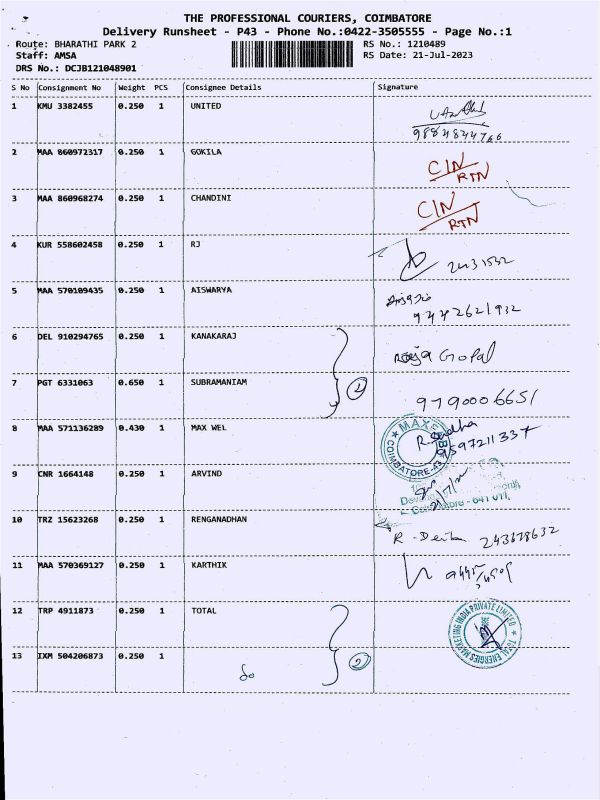 THE PROFESSIONAL COURIERS, COIMBATORE
Delivery Runsheet - P43 - Phone No.:0422-3505555 - Page No.:1
Route: BHARATHI PARK 2 RS No.: 1210489
Staff: AMSA RS Date: 21-Jul-2023
DRS No.: DCJB121048901
S No Consignment No Weight PCS Consignee Details Signature
1 KMU 3382455 0.250 1 UNITED
9884844766
2 MAA 860972317 0.250 1 GOKILA CIN/RTN
3 MAA 860968274 0.250 1 CHANDINI CIN/RTN
4 KUR 558602458 0.250 1 RJ 2431532
5 MAA 570109435 0.250 1 AISWARYA
9442621932
6 DEL 910294765 0.250 1 KANAKARAJ Raja Gopal
7 PGT 6331063 0.650 1 SUBRAMANIAM 2 9790006651
8 MAA 571136289 0.430 1 MAX WEL R. Sudha
9597211337
COIMBATORE-43
9 CNR 1664148 0.250 1 ARVIND
10 TRZ 15623268 0.250 1 RENGANADHAN R - Devika 243678632
11 MAA 570369127 0.250 1 KARTHIK
12 TRP 4911873 0.250 1 TOTAL TOTAL ENERGIES MARKETING INDIA PRIVATE LIMITED
13 IXM 504206873 0.250 1 do 2